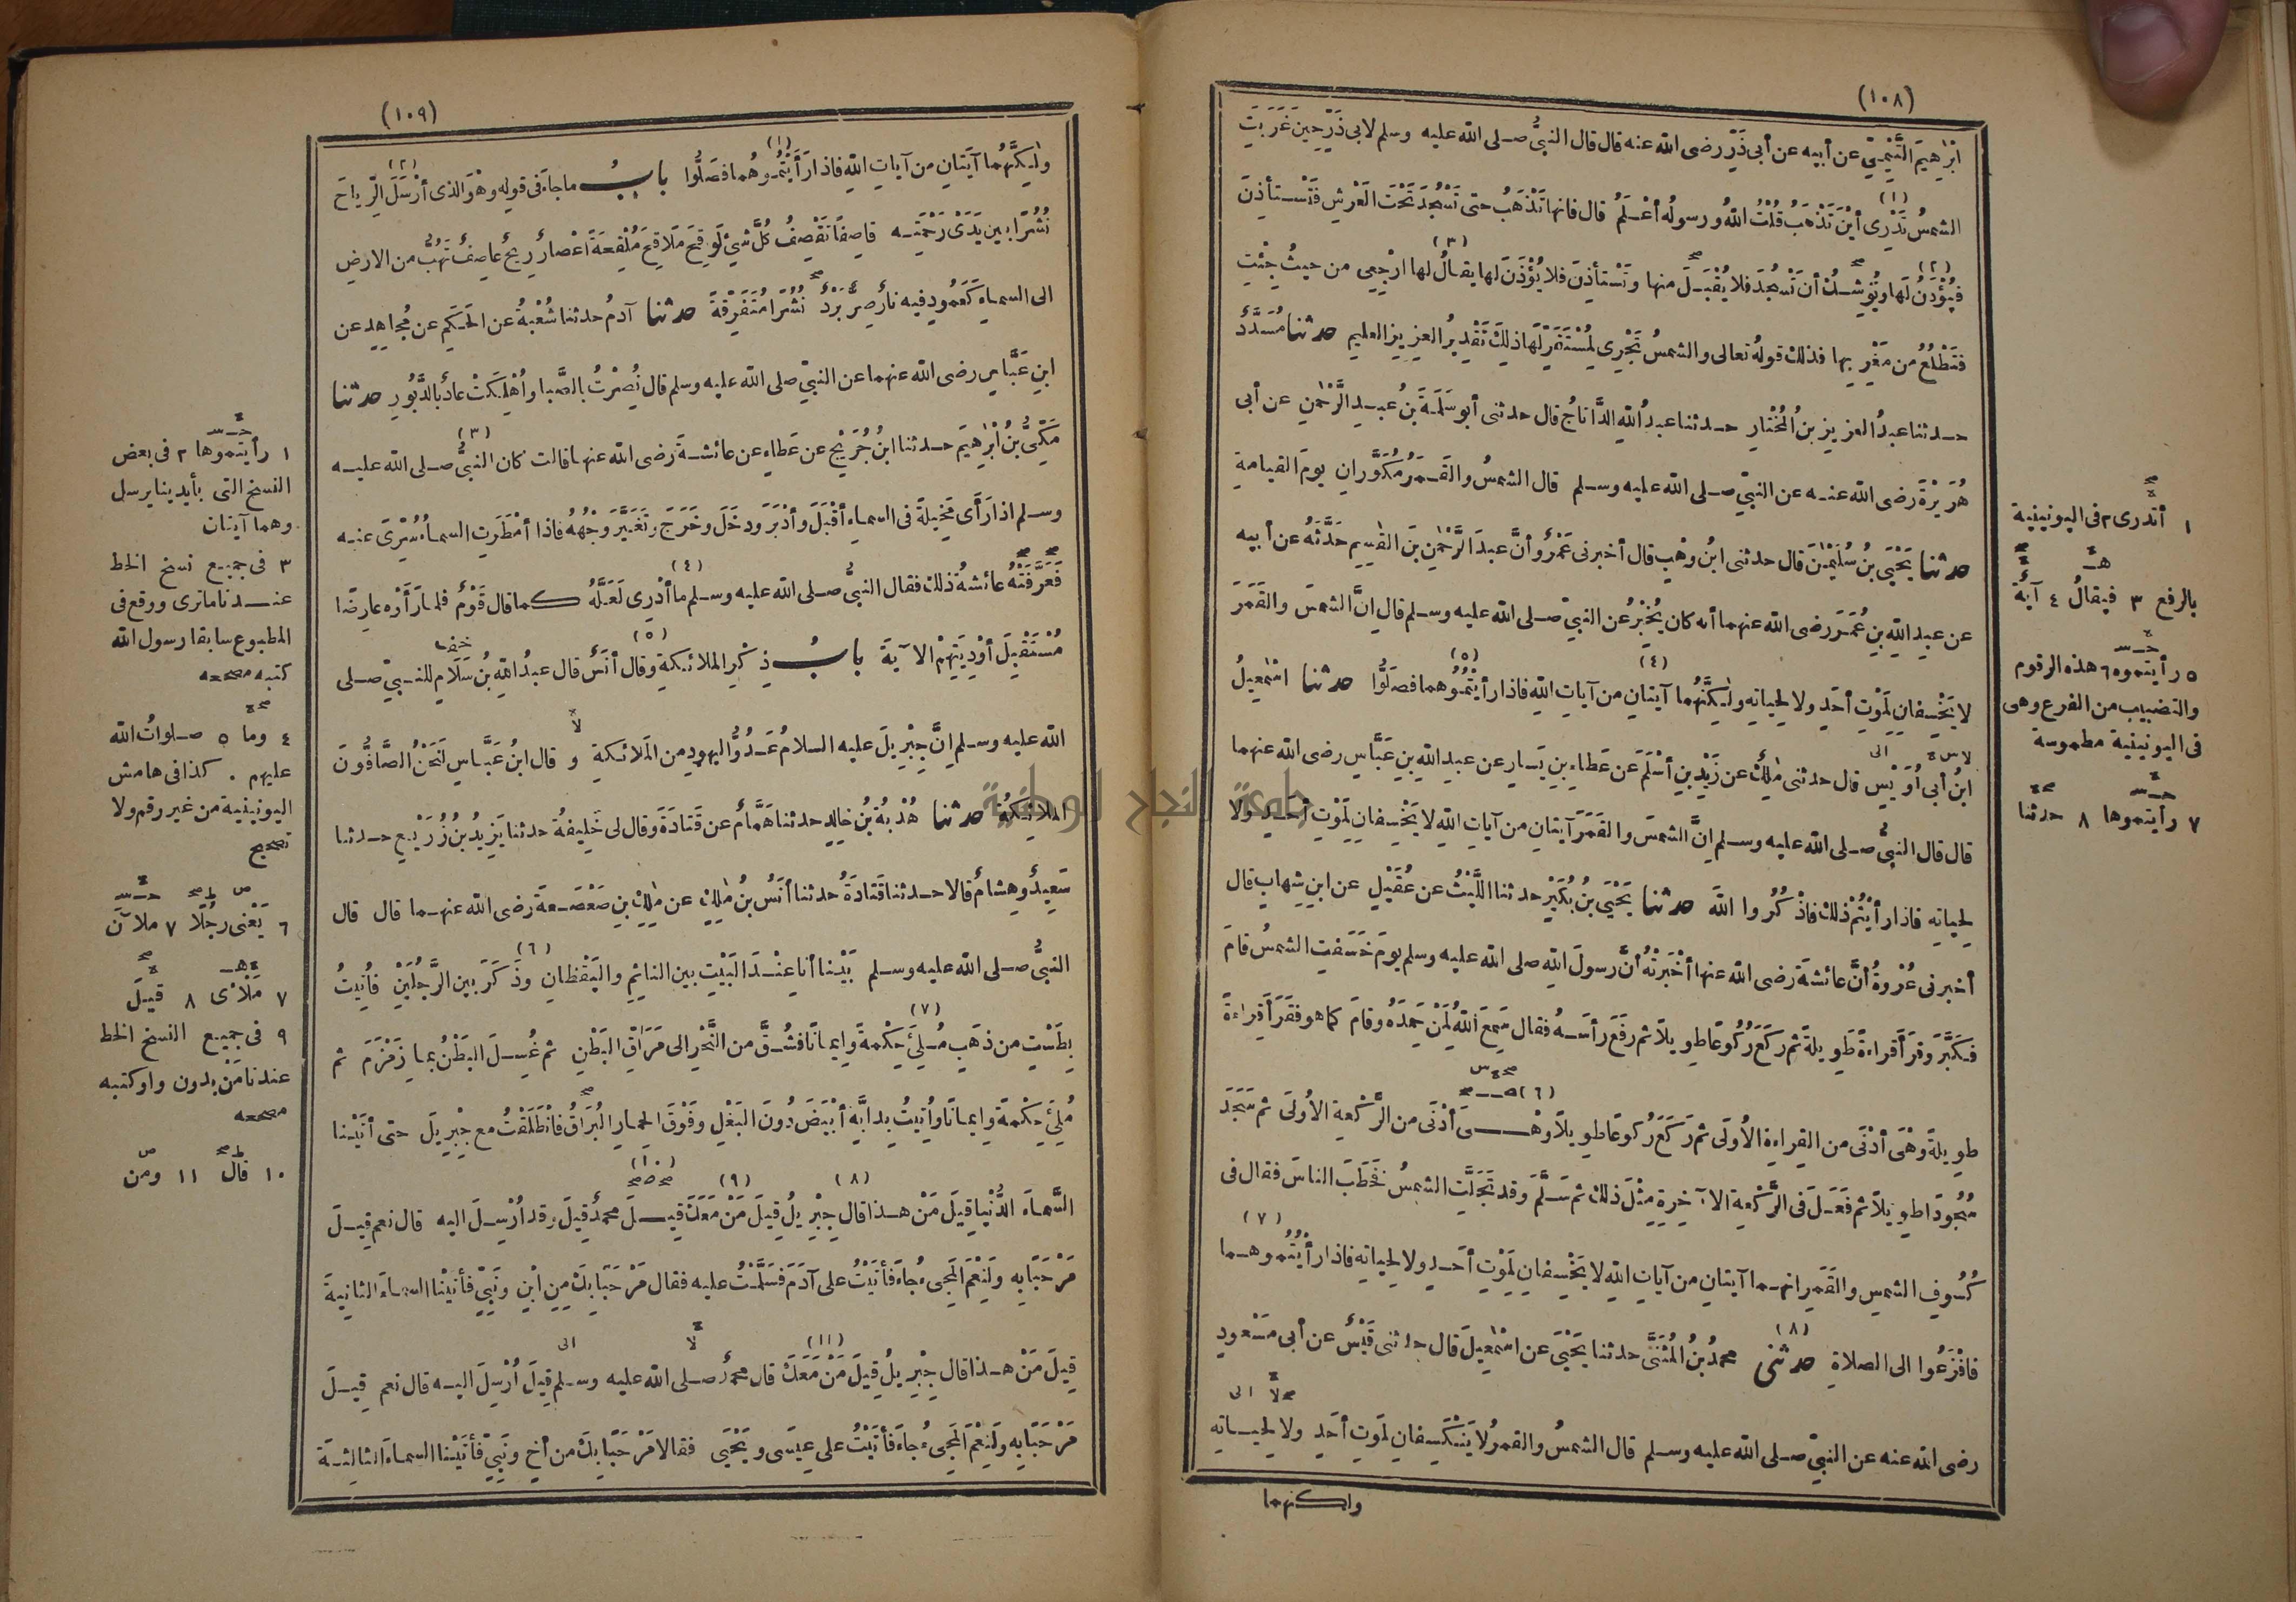 (١٠٨)
ابْرٰهِيمَ التَّيْمِيِّ عن أبيه عن أبى ذَرٍّ رضى الله عنه قال قال النبىُّ صلى الله عليه وسلم لابى ذَرٍّ حِينَ غَرَبَتِ
الشمسُ تَدْرِى أيْنَ تَذْهَبُ قُلْتُ اللهُ ورسولُه أعْلَمُ قال فانها تَذْهَبُ حتى تَسْجُدَ تَحْتَ العَرْشِ فَتَسْتأذِنَ
فيُؤْذَنُ لَها ويُوشِكُ أن تَسْجُدَ فلا يُقْبَلَ منها وتَسْتأذِنَ فلا يُؤْذَنَ لها يقالُ لها ارْجِعِى من حيثُ جِئْتِ
فتَطْلُعُ من مَغْرِبِها فذلك قولُه تعالى والشمسُ تَجْرِى لِمُسْتَقَرٍّ لَها ذلِكَ تَقْدِيرُ العزيزِ العليمِ حدثنا مُسَدَّدٌ
حدثنا عبدُ العزيزِ بنُ المُخْتارِ حدثنا عبدُ اللهِ الدَّاناجُ قال حدثنى أبو سَلَمَةَ بنُ عبدِ الرَّحْمٰنِ عن أبى
هُرَيْرَةَ رضى الله عنه عن النبىِّ صلى الله عليه وسلم قال الشمسُ والقَمَرُ مُكَوَّرانِ يومَ القيامةِ
حدثنا يَحْيَى بنُ سُلَيْمٰنَ قال حدثنى ابنُ وهْبٍ قال أخبرنى عَمْرٌو أنَّ عبدَ الرَّحْمٰنِ بنَ القٰسِمِ حَدَّثَهُ عن أبيه
عن عبدِ اللهِ بنِ عُمَرَ رضى الله عنهما أنه كان يُخْبِرُ عن النبىِّ صلى الله عليه وسلم قال إنَّ الشمسَ والقَمَرَ
لا يَخْسِفانِ لِمَوْتِ أحَدٍ ولا لِحياتِه ولٰكِنَّهُما آيتانِ من آياتِ اللهِ فاذا رأيْتُمُوهما فصَلُّوا حدثنا اسْمٰعِيلُ
ابنُ أبى أُوَيْسٍ قال حدثنى مٰلِكٌ عن زَيْدِ بنِ أسْلَمَ عن عَطاءِ بنِ يَسارٍ عن عبدِ اللهِ بنِ عَبَّاسٍ رضى الله عنهما
قال قال النبىُّ صلى الله عليه وسلم إنَّ الشمسَ والقَمَرَ آيتانِ من آياتِ اللهِ لا يَخْسِفانِ لِمَوْتِ أحَدٍ ولا
لِحياتِه فاذا رأيْتُمْ ذلك فاذْكُرُوا اللهَ حدثنا يَحْيَى بنُ بُكَيْرٍ حدثنا اللَّيْثُ عن عُقَيْلٍ عن ابنِ شِهابٍ قال
أخبرنى عُرْوةُ أنَّ عائشةَ رضى الله عنها أخْبَرَتْهُ أنَّ رسولَ اللهِ صلى الله عليه وسلم يومَ خَسَفَتِ الشمسُ قامَ
فكَبَّرَ وقرَأَ قراءةً طَويلةً ثم ركَعَ رُكُوعًا طويلًا ثم رفَعَ رأسَهُ فقال سَمِعَ اللهُ لِمَنْ حَمِدَهُ وقامَ كما هو فقَرَأَ قراءةً
طويلةً وهْىَ أدْنَى من القراءةِ الأُولَى ثم رَكَعَ رُكوعًا طويلًا وهْىَ أدْنَى من الرَّكْعةِ الأُولَى ثم سَجَدَ
سُجُودًا طويلًا ثم فَعَلَ فى الرَّكْعةِ الآخِرةِ مِثْلَ ذلك ثم سَلَّمَ وقد تَجَلَّتِ الشمسُ فخَطَبَ الناسَ فقال فى
كُسُوفِ الشمسِ والقَمَرِ انهما آيتانِ من آياتِ اللهِ لا يَخْسِفانِ لِمَوْتِ أحَدٍ ولا لِحياتِه فاذا رأيْتُمُوهما
فافْزَعُوا الى الصلاةِ حدثنى محمدُ بنُ المُثَنَّى حدثنا يَحْيَى عن اسْمٰعِيلَ قال حدثنى قَيْسٌ عن أبى مَسْعودٍ
رضى الله عنه عن النبىِّ صلى الله عليه وسلم قال الشمسُ والقمرُ لا يَنْكَسِفانِ لمَوتِ أحَدٍ ولا لِحياتِه
ولكنهما
١ أتدرى ٢ فى اليونينية
بالرفع ٣ فيقالُ ٤ آيَةٌ
٥ رأيتموه ٦ هذه الرقوم
والتضبيب من الفرع وهى
فى اليونينية مطموسة
٧ رأيتموها ٨ حدثنا
(١٠٩)
ولٰكِنَّهُما آيَتانِ من آياتِ اللهِ فاذا رَأَيْتُمُوهُما فصَلُّوا بابُ ما جاءَ فى قوله وهْوَ الذى أرْسَلَ الرِّياحَ
نُشُرًا بين يَدَىْ رَحْمَتِه قاصِفًا تَقْصِفُ كُلَّ شَىْءٍ لَوَاقِحَ مَلاقِحَ مُلْقِحَةً اعْصارٌ رِيحٌ عاصِفٌ تَهُبُّ من الارضِ
الى السماءِ كَعَمُودٍ فيه نارٌ صِرٌّ بَرْدٌ نُشُرًا مُتَفَرِّقةً حدثنا آدمُ حدثنا شُعْبةُ عن الحَكَمِ عن مُجاهِدٍ عن
ابنِ عَبَّاسٍ رضى الله عنهما عن النبىِّ صلى الله عليه وسلم قال نُصِرْتُ بالصَّبا وأُهْلِكَتْ عادٌ بالدَّبُورِ حدثنا
مَكِّىُّ بنُ ابْرٰهِيمَ حدثنا ابنُ جُرَيْجٍ عن عَطاءٍ عن عائشةَ رضى الله عنها قالت كان النبىُّ صلى الله عليه
وسلم اذا رَأَى مَخِيلَةً فى السماءِ أقْبَلَ وأدْبَرَ ودخَلَ وخَرَجَ وتَغَيَّرَ وَجْهُهُ فاذا أمْطَرَتِ السماءُ سُرِّىَ عنه
فَعَرَّفَتْهُ عائشةُ ذلك فقال النبىُّ صلى الله عليه وسلم ما أدْرِى لَعَلَّهُ كما قال قَوْمٌ فلما رَأَوْه عارِضًا
مُسْتَقْبِلَ أوْدِيَتِهِمْ الآيةَ بابُ ذِكْرِ الملائكةِ وقال أنَسٌ قال عبدُ اللهِ بنُ سَلَامٍ للنبىِّ صلى
الله عليه وسلم انَّ جِبْرِيلَ عليه السلامُ عَدُوُّ اليهودِ من المَلائكةِ وقال ابنُ عَبَّاسٍ لَنَحْنُ الصَّافُّونَ
المَلائكةُ حدثنا هُدْبةُ بنُ خالِدٍ حدثنا هَمَّامٌ عن قَتادَةَ وقال لى خَلِيفةُ حدثنا يَزِيدُ بنُ زُرَيْعٍ حدثنا
سَعِيدٌ وهِشامٌ قالا حدثنا قَتادَةُ حدثنا أنَسُ بنُ مٰلِكٍ عن مٰلِكِ بنِ صَعْصَعةَ رضى الله عنهما قال قال
النبىُّ صلى الله عليه وسلم بَيْنا أنا عِنْدَ البَيْتِ بين النائِمِ واليَقْظانِ وذَكَرَ بين الرَّجُلَيْنِ فأُتِيتُ
بِطَسْتٍ من ذَهَبٍ مُلِئَ حِكْمةً وايمانًا فشُقَّ من النَّحْرِ الى مَرَاقِّ البَطْنِ ثم غُسِلَ البَطْنُ بماءِ زَمْزَمَ ثم
مُلِئَ حِكْمةً وايمانًا وأُتِيتُ بدابَّةٍ أبْيَضَ دُونَ البَغْلِ وفَوْقَ الحِمارِ البُرَاقُ فانْطَلَقْتُ مع جِبْرِيلَ حتى أتَيْنا
السَّماءَ الدُّنْيا قِيلَ مَنْ هذا قال جِبْرِيلُ قِيلَ مَنْ مَعَكَ قِيلَ محمدٌ قِيلَ وقد أُرْسِلَ اليه قال نعم قِيلَ
مَرْحَبًا به ولَنِعْمَ المَجِىءُ جاءَ فأتَيْتُ على آدَمَ فسَلَّمْتُ عليه فقال مَرْحَبًا بِكَ مِن ابْنٍ ونَبِىٍّ فأتَيْنا السماءَ الثانيةَ
قِيلَ مَنْ هذا قال جِبْرِيلُ قِيلَ مَنْ مَعَكَ قال محمدٌ صلى الله عليه وسلم قِيلَ أُرْسِلَ اليه قال نعم قِيلَ
مَرْحَبًا به ولَنِعْمَ المَجِىءُ جاءَ فأتَيْتُ على عِيسَى ويَحْيَى فقالا مَرْحَبًا بك من أخٍ ونَبِىٍّ فأتَيْنا السماءَ الثالثةَ
١ رأيتموها ٢ فى بعض
النسخ التى بأيدينا يرسل
وهما آيتان
٣ فى جميع نسخ الخط
عندنا ما ترى ووقع فى
المطبوع سابقا رسول الله
كتبه مصححه
٤ وما ٥ صلواتُ الله
عليهم . كذا فى هامش
اليونينية من غير رقم ولا
تصحيح
٦ يَعْنى رجُلًا ٧ ملآن
٧ مَلْأى ٨ قيلَ
٩ فى جميع النسخ الخط
عندنا مَنْ بدون واو كتبه
مصححه
١٠ قال ١١ ومن
جامعة النجاح الوطنية